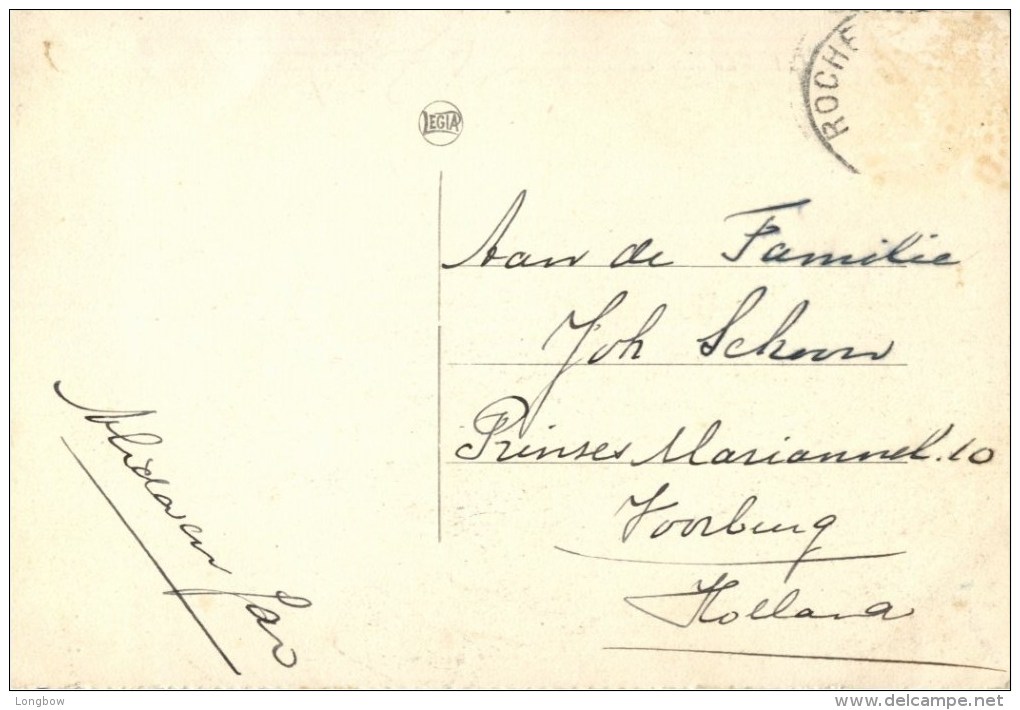 ROCHE
LEGIA
Aan de Familie
Joh Schoon
Prinses Mariannel. 10
Voorburg
Holland
Alida en Jan
Longbow
www.delcampe.net